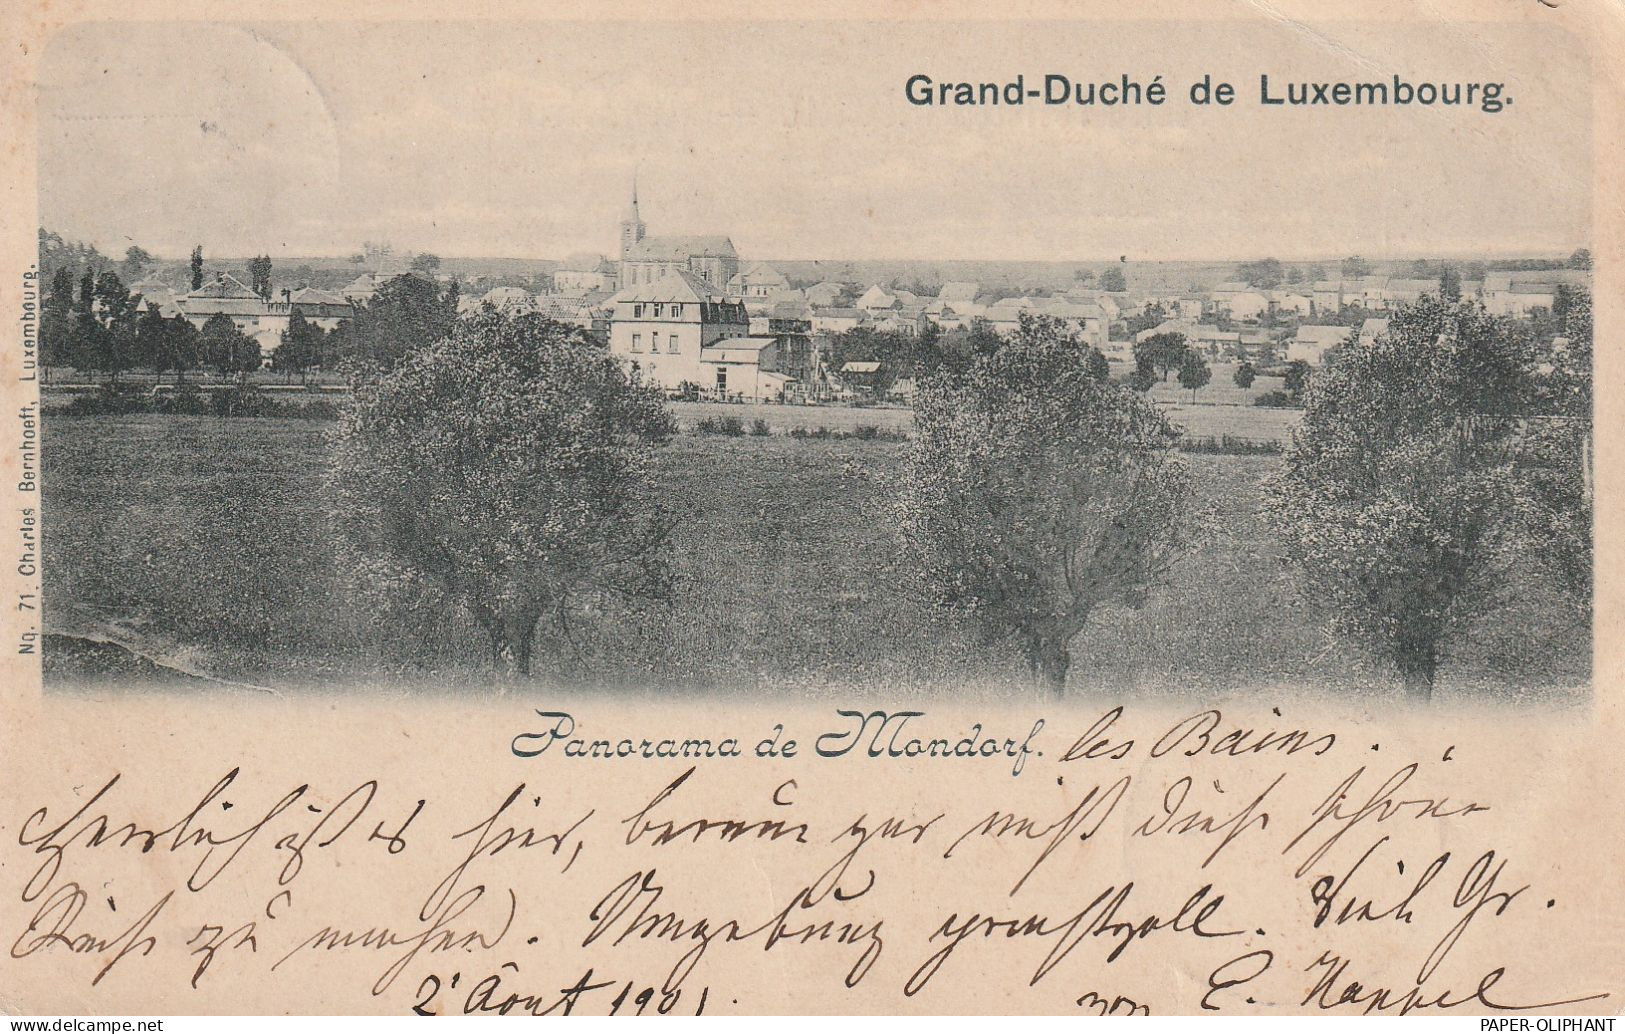 Grand-Duché de Luxembourg.
No. 71. Charles Bernhoeft, Luxembourg.
Panorama de Mondorf. les Bains.
Herrlich ist es hier, bereue gar nicht diese schöne
Reise zu machen. Umgebung prachtvoll. Viele Gr.
2' Août 1901. von E. Happel
PAPER-OLIPHANT